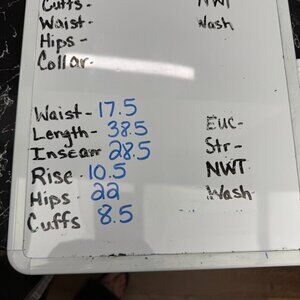 Cuffs- NWT
Waist- Wash
Hips -
Collar-
Waist- 17.5
Length- 38.5 EUC-
Inseam 28.5 Str-
Rise- 10.5 NWT
Hips- 22 Wash-
Cuffs 8.5